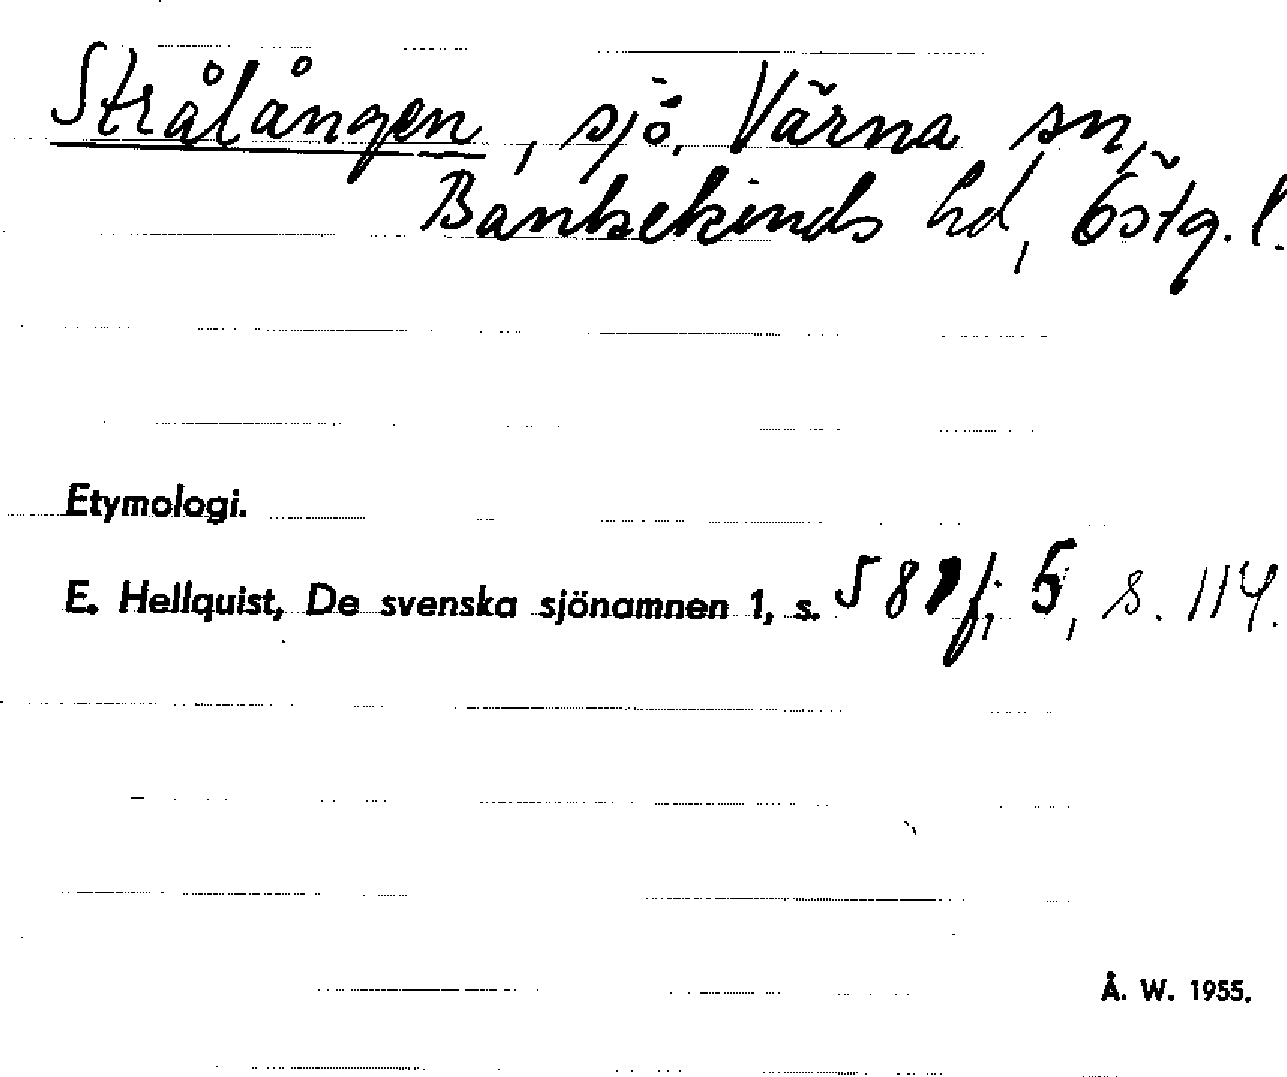 Strålången, sjö. Värna sn,
Bankekinds hd, Östg. l.
Etymologi.
E. Hellquist, De svenska sjönamnen 1, s. 581 f; 5, s. 114.
Å. W. 1955.